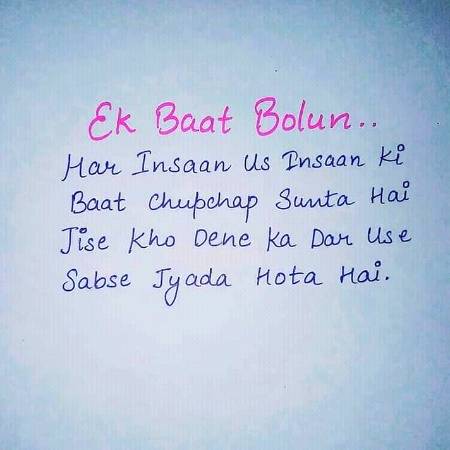 Ek Baat Bolun..
Har Insaan Us Insaan Ki
Baat Chupchap Sunta Hai
Jise Kho Dene Ka Dar Use
Sabse Jyada Hota Hai.